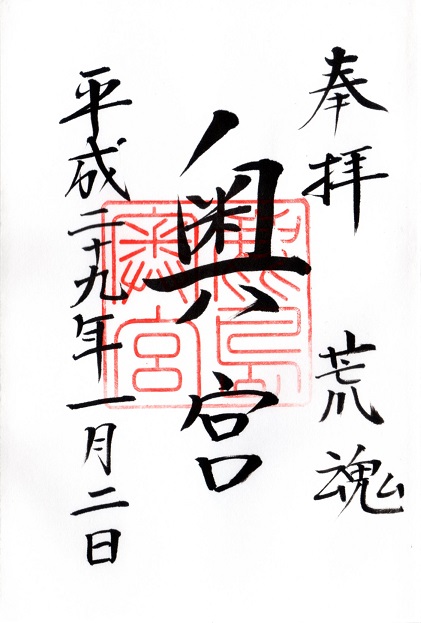 奉拝 荒魂
奥宮
平成二十九年一月二日